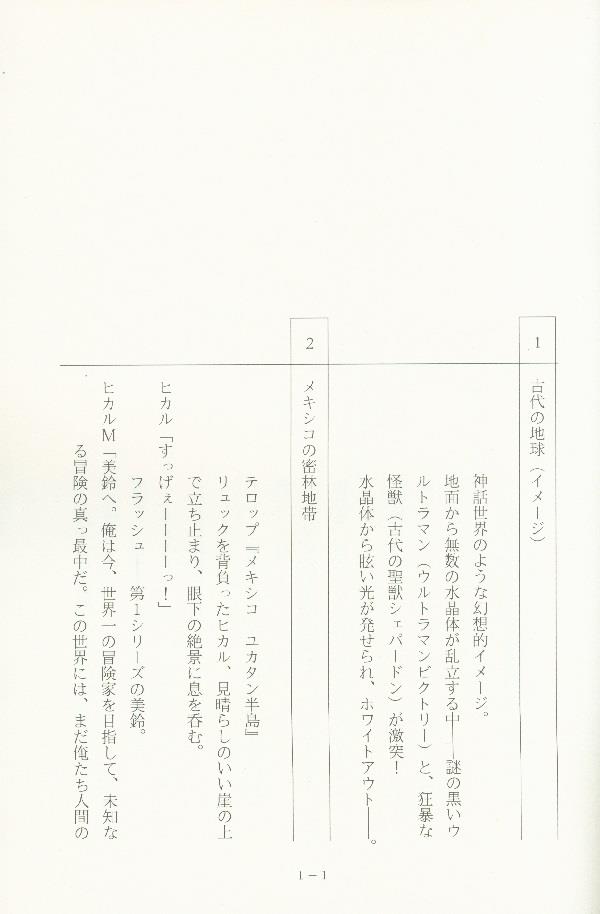 1
古代の地球（イメージ）
神話世界のような幻想的イメージ。
地面から無数の水晶体が乱立する中――謎の黒いウ
ルトラマン（ウルトラマンビクトリー）と、狂暴な
怪獣（古代の聖獣シェパードン）が激突！
水晶体から眩い光が発せられ、ホワイトアウト――。
2
メキシコの密林地帯
テロップ『メキシコ　ユカタン半島』
リュックを背負ったヒカル、見晴らしのいい崖の上
で立ち止まり、眼下の絶景に息を呑む。
ヒカル「すっげぇーーーーっ！」
フラッシュ――第1シリーズの美鈴。
ヒカルM「美鈴へ。俺は今、世界一の冒険家を目指して、未知な
る冒険の真っ最中だ。この世界には、まだ俺たち人間の
1－1